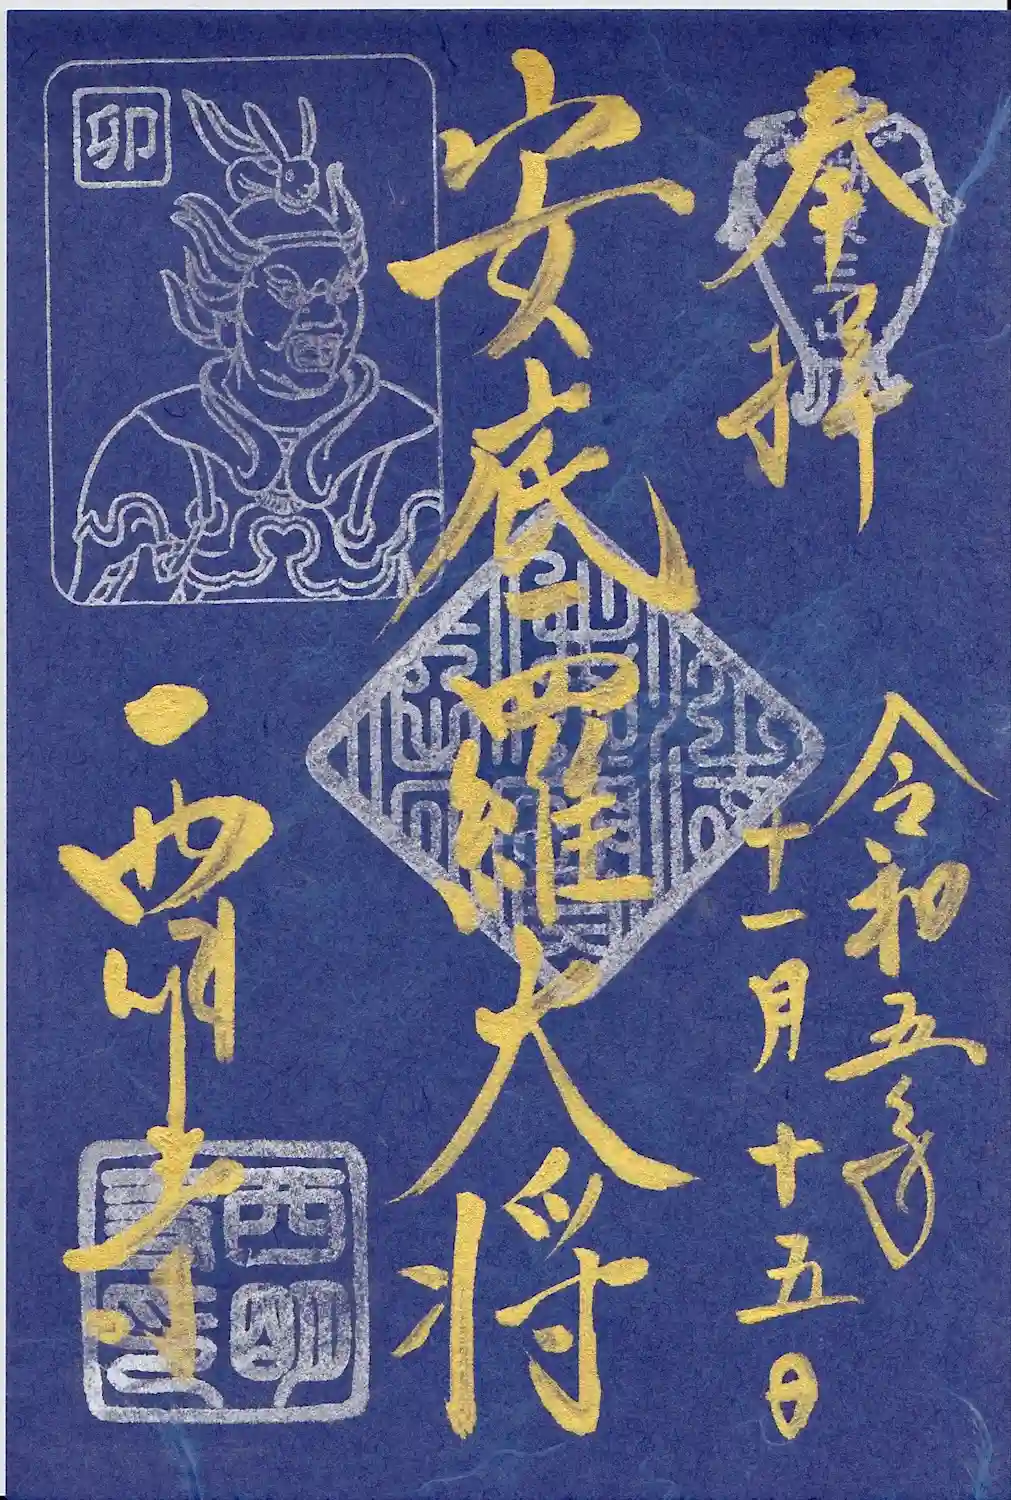 奉拝
令和五年
十一月十五日
安底羅大将
西明寺
卯
西明寺印